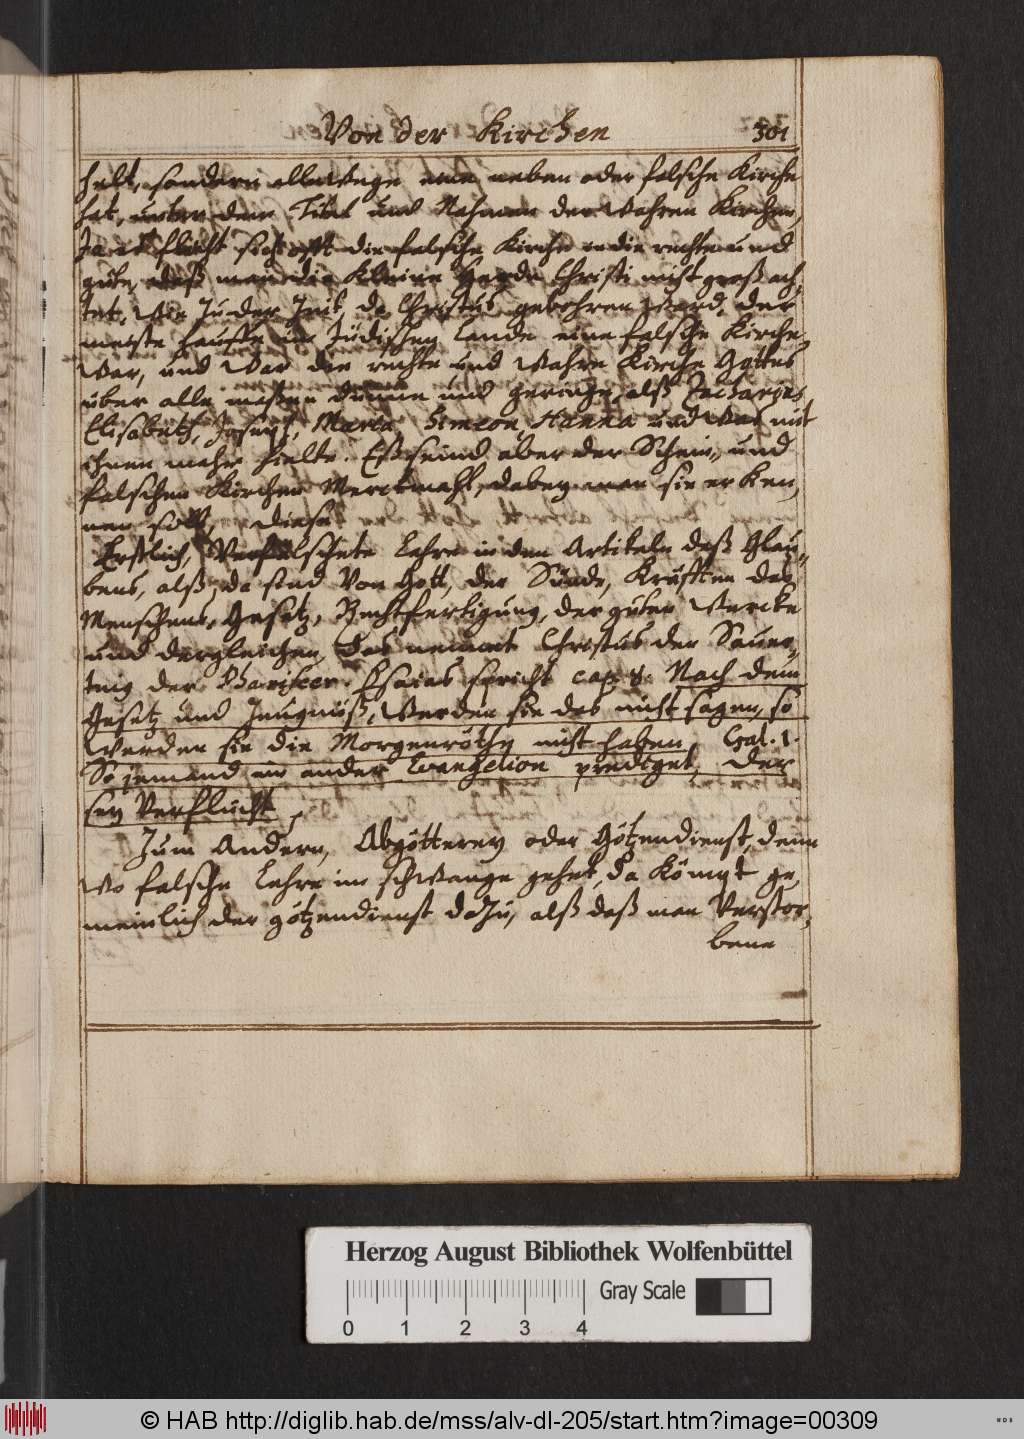 Von der Kirchen 301
helt, sondern allewege eine neben oder falsche Kirche
hat, unter dem Titul und Nahmen der Wahren Kirchen,
Ja es flucht sich offt die falsche Kirche in die rechte und
gute, daß man die Kleine Herde Christi nicht groß ach,
tet, Wie Zu der Zeit, da Christus gebohren Ward, der
meiste hauffe im Jüdischen Lande eine falsche Kirche
War, und War die rechte und Wahre Kirche Gottes
über alle maßen dünne und geringe, alß Zacharias
Elisabeth, Joseph, Maria, Simeon, Hanna und Was mit
ihnen mehr hielte. Eß seind aber der Schein, und
falschen Kirchen Merckmahl, dabey man sie er Ken,
nen soll, diese
Erstlich, Verfälschete Lehre in den Artikeln deß Glau,
bens, alß, da sind Von Gott, der Sünde, Kräfften des
Menschens, Gesetz, Rechtfertigung, der guten Wercke
und dergleichen, Das nennet Christus der Sauer,
teig der Phariseer. Esaias spricht cap. 8. Nach dem
Gesetz und Zeugnüß, Werden sie das nicht sagen, so
Werden sie die Morgenröthe nicht haben, Gal. 1.
So jemand ein ander Evangelion prediget, der
sey Verflucht,
Zum Andern, Abgötterey oder Götzendienst, denn
Wo falsche Lehre im schWange gehet, da Kömpt ge,
meinlich der götzendienst daZu, alß daß man Verstor,
bene
Herzog August Bibliothek Wolfenbüttel
Gray Scale
0 1 2 3 4
© HAB http://diglib.hab.de/mss/alv-dl-205/start.htm?image=00309